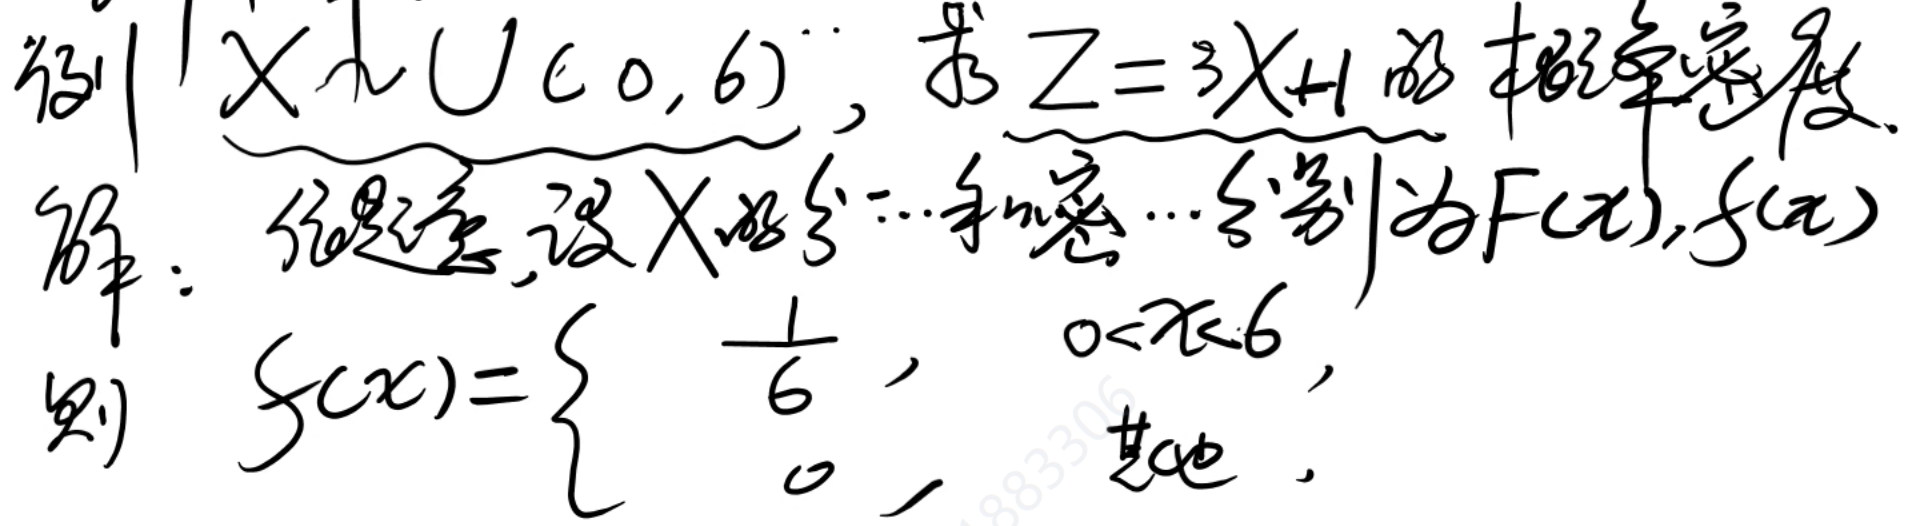 例 X~U(0,6), 求Z=3X+1的概率密度.
解: 依题意,设X的分…和密…分别为F(x),f(x)
则 f(x)={ 1/6, 0<x<6,
0, 其他.
1883306